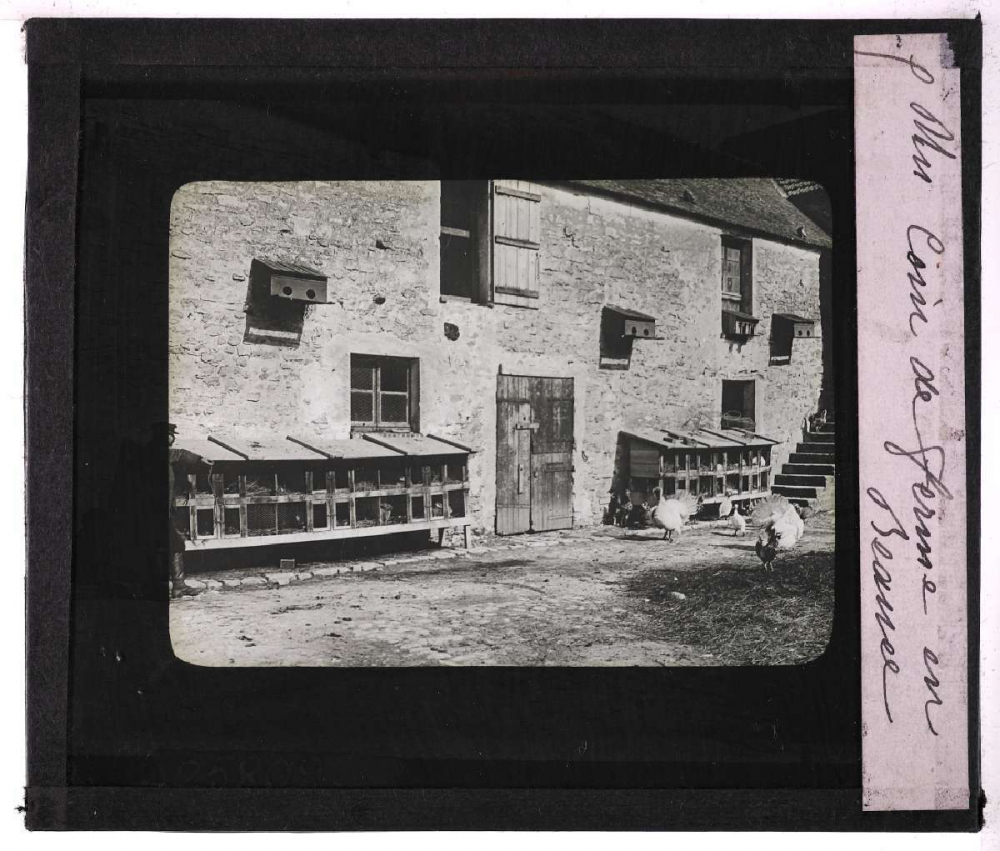 Un Coin de ferme en
Beauce